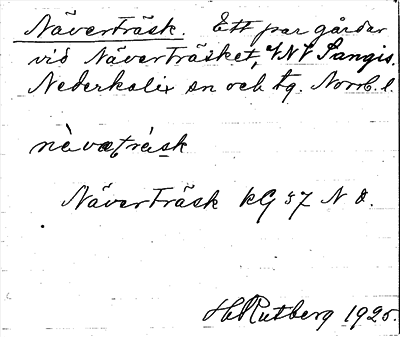 Näverträsk. Ett par gårdar
vid Näverträsket, VNV Sangis.
Nederkalix sn och tg. Norrb. l.
nèvatrésk
Näverträsk KG 57 N ö.
H Rutberg 1925.